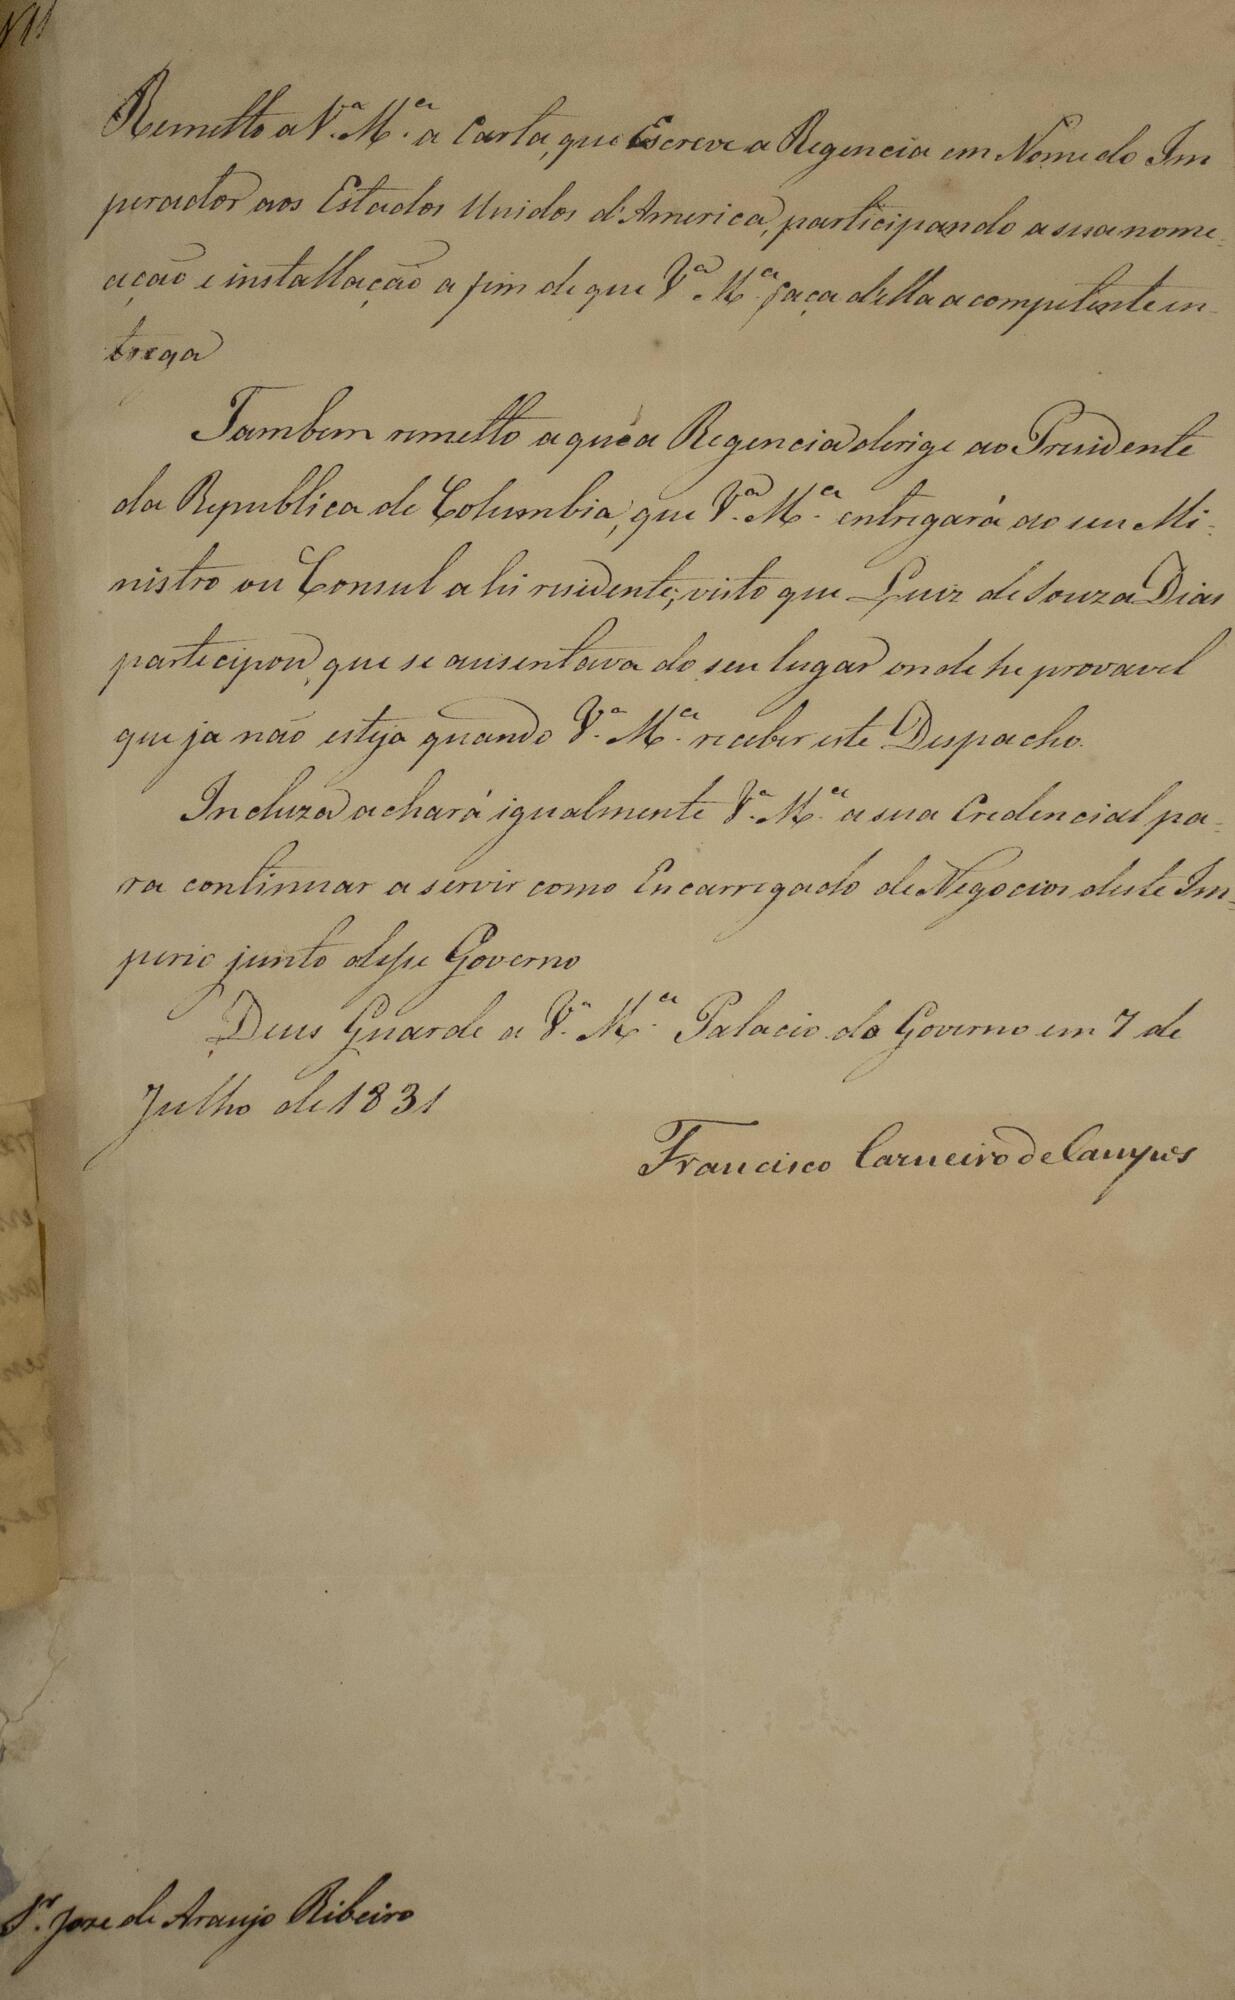 Remetto a V.ª M.ce a Carta, que Escreve a Regencia em Nome do Im
perador aos Estados Unidos d'America, participando a sua nome-
ação e installação a fim de que V.ª M.ce faça della a competente en-
trega
Tambem remetto a que a Regencia derige ao Presidente
da Republica de Columbia, que V.ª M.ce entregará ao seu Mi-
nistro ou Consul a hi residente; visto que Luiz de Souza Dias
participou, que se ausentava do seu lugar onde he provavel
que ja não esteja quando V.ª M.ce receber este Despacho.
Incluza achará igualmente V.ª M.ce a sua Credencial pa-
ra continuar a servir como Encarregado de Negocios deste Im-
perio junto desse Governo
Deus Guarde a V.ª M.ce Palacio do Governo em 7 de
Julho de 1831
Francisco Carneiro de Campos
S.r Joze de Araujo Ribeiro